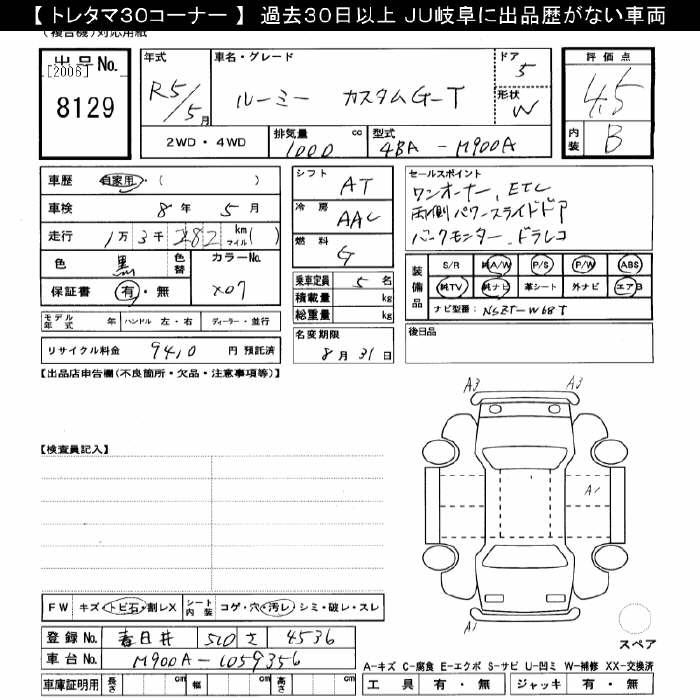 【 トレタマ30コーナー 】 過去30日以上 JU岐阜に出品歴がない車両
(複合機)対応用紙
出品No.
[2006]
8129
年式
R5/5月
車名・グレード
ルーミー カスタムG-T
ドア
5
形状
W
2WD・4WD
排気量
1000 cc
型式
4BA - M900A
評価点
4.5
内装
B
車歴 自家用・( )
車検 8年 5月
走行 1万3千282 km マイル( )
色 黒
色替
カラーNo.
X07
保証書 有・無
シフト AT
冷房 AAC
燃料 G
乗車定員 5名
積載量 kg
総重量 kg
セールスポイント
ワンオーナー、ETC
両側パワースライドドア
バックモンター、ドラレコ
装備品
S/R 純A/W P/S P/W ABS
純TV 純ナビ 革シート 外ナビ エアB
ナビ型番: NSZT-W68T
モデル年式 年 ハンドル 左・右 ディーラー・並行
リサイクル料金 9410 円 預託済
名変期限
8月31日
後日品
【出品店申告欄(不良箇所・欠品・注意事項等)】
A3
A3
【検査員記入】
A1
A1
FW キズ・トビ石・割レX シート内装 コゲ・穴・汚レ・シミ・破レ・スレ
スペア
登録No. 春日井 510 さ 4536
車台No. M900A-1059356
A-キズ C-腐食 E-エクボ S-サビ U-凹ミ W-補修 XX-交換済
車庫証明用 長さ cm 幅 cm 高さ cm
工具 有・無 ジャッキ 有・無